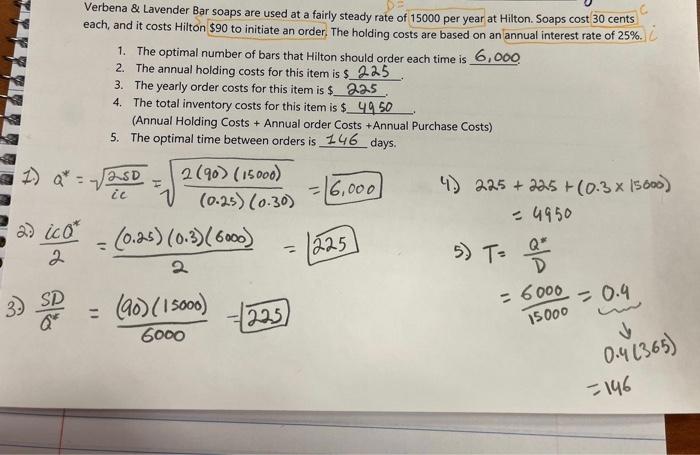 D=
Verbena & Lavender Bar soaps are used at a fairly steady rate of 15000 per year at Hilton. Soaps cost 30 cents C
each, and it costs Hilton $90 to initiate an order. The holding costs are based on an annual interest rate of 25%. i
1. The optimal number of bars that Hilton should order each time is 6,000
2. The annual holding costs for this item is $ 225.
3. The yearly order costs for this item is $ 225.
4. The total inventory costs for this item is $ 4950.
(Annual Holding Costs + Annual order Costs +Annual Purchase Costs)
5. The optimal time between orders is 146 days.
1) Q* = √2SD/ic = √2(90)(15000)/(0.25)(0.30) = 6,000
2) icQ*/2 = (0.25)(0.3)(6000)/2 = 225
3) SD/Q* = (90)(15000)/6000 = 225
4) 225 + 225 + (0.3 x 15000)
= 4950
5) T = Q*/D
= 6000/15000 = 0.4
↓
0.4(365)
= 146